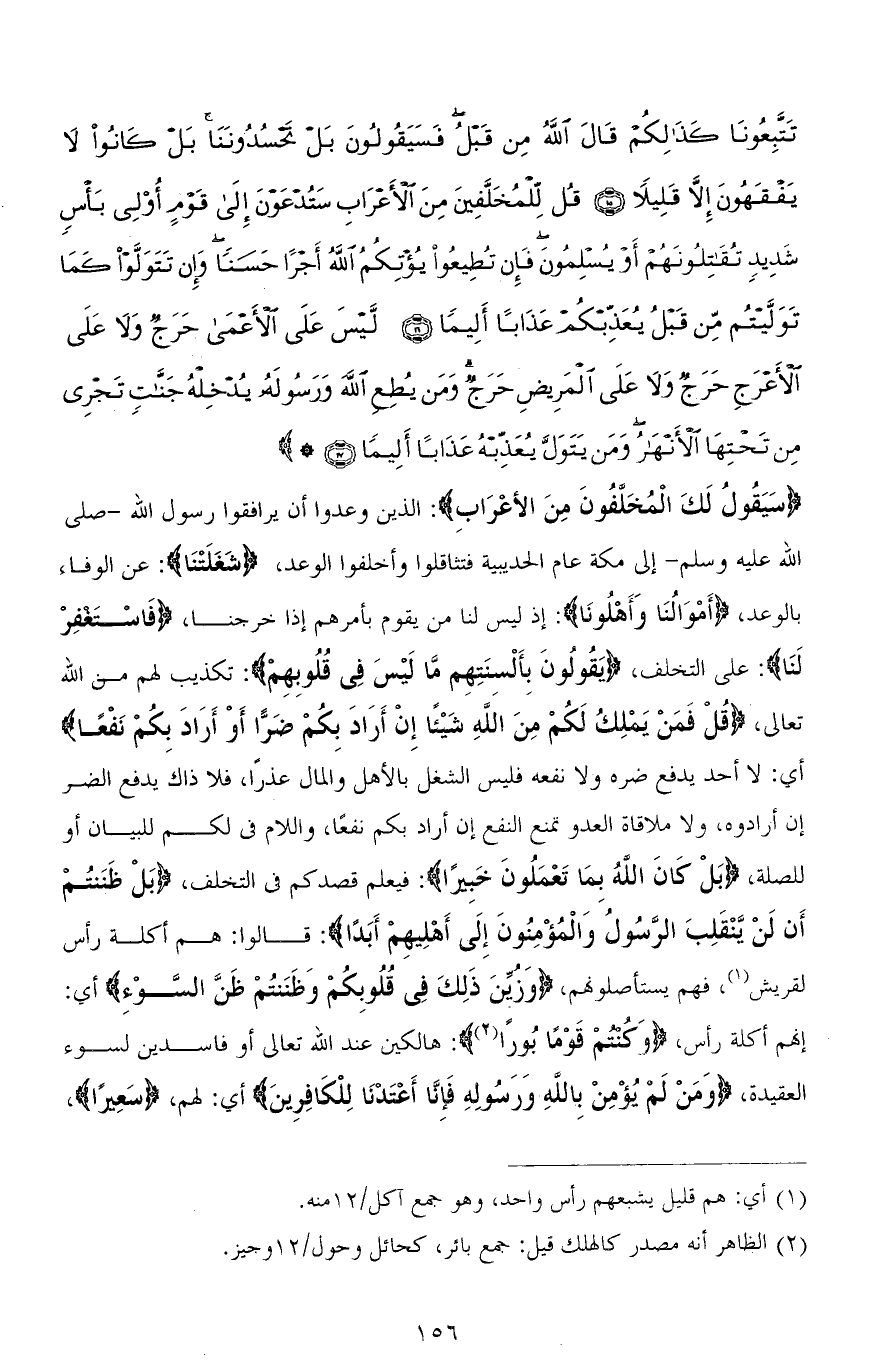 تَتَّبِعُونَا كَذَٰلِكُمْ قَالَ ٱللَّهُ مِن قَبْلُ ۖ فَسَيَقُولُونَ بَلْ تَحْسُدُونَنَا ۚ بَلْ كَانُوا۟ لَا
يَفْقَهُونَ إِلَّا قَلِيلًا ۝١٥ قُل لِّلْمُخَلَّفِينَ مِنَ ٱلْأَعْرَابِ سَتُدْعَوْنَ إِلَىٰ قَوْمٍ أُو۟لِى بَأْسٍ
شَدِيدٍ تُقَـٰتِلُونَهُمْ أَوْ يُسْلِمُونَ ۖ فَإِن تُطِيعُوا۟ يُؤْتِكُمُ ٱللَّهُ أَجْرًا حَسَنًا ۖ وَإِن تَتَوَلَّوْا۟ كَمَا
تَوَلَّيْتُم مِّن قَبْلُ يُعَذِّبْكُمْ عَذَابًا أَلِيمًا ۝١٦ لَّيْسَ عَلَى ٱلْأَعْمَىٰ حَرَجٌ وَلَا عَلَى
ٱلْأَعْرَجِ حَرَجٌ وَلَا عَلَى ٱلْمَرِيضِ حَرَجٌ ۗ وَمَن يُطِعِ ٱللَّهَ وَرَسُولَهُۥ يُدْخِلْهُ جَنَّـٰتٍ تَجْرِى
مِن تَحْتِهَا ٱلْأَنْهَـٰرُ ۖ وَمَن يَتَوَلَّ يُعَذِّبْهُ عَذَابًا أَلِيمًا ۝١٧ * ﴾
﴿سَيَقُولُ لَكَ الْمُخَلَّفُونَ مِنَ الأَعْرَابِ﴾: الذين وعدوا أن يرافقوا رسول الله -صلى
الله عليه وسلم- إلى مكة عام الحديبية فتثاقلوا وأخلفوا الوعد، ﴿شَغَلَتْنَا﴾: عن الوفاء
بالوعد، ﴿أَمْوَالُنَا وَأَهْلُونَا﴾: إذ ليس لنا من يقوم بأمرهم إذا خرجنا، ﴿فَاسْتَغْفِرْ
لَنَا﴾: على التخلف، ﴿يَقُولُونَ بِأَلْسِنَتِهِم مَّا لَيْسَ فِى قُلُوبِهِمْ﴾: تكذيب لهم من الله
تعالى، ﴿قُلْ فَمَنْ يَمْلِكُ لَكُمْ مِنَ اللَّهِ شَيْئًا إِنْ أَرَادَ بِكُمْ ضَرًّا أَوْ أَرَادَ بِكُمْ نَفْعًا﴾
أي: لا أحد يدفع ضره ولا نفعه فليس الشغل بالأهل والمال عذرًا، فلا ذاك يدفع الضر
إن أرادوه، ولا ملاقاة العدو تمنع النفع إن أراد بكم نفعًا، واللام فى لكم للبيان أو
للصلة، ﴿بَلْ كَانَ اللَّهُ بِمَا تَعْمَلُونَ خَبِيرًا﴾: فيعلم قصدكم فى التخلف، ﴿بَلْ ظَنَنتُمْ
أَن لَنْ يَّنْقَلِبَ الرَّسُولُ وَالْمُؤْمِنُونَ إِلَى أَهْلِيهِمْ أَبَدًا﴾: قالوا: هم أكلة رأس
لقريش(١)، فهم يستأصلونهم، ﴿وَزُيِّنَ ذَلِكَ فِى قُلُوبِكُمْ وَظَنَنتُمْ ظَنَّ السَّوْءِ﴾ أي:
إنهم أكلة رأس، ﴿وَكُنْتُمْ قَوْمًا بُورًا(٢)﴾: هالكين عند الله تعالى أو فاسدين لسوء
العقيدة، ﴿وَمَنْ لَمْ يُؤْمِنْ بِاللَّهِ وَرَسُولِهِ فَإِنَّا أَعْتَدْنَا لِلْكَافِرِينَ﴾ أي: لهم، ﴿سَعِيرًا﴾،
(١) أي: هم قليل يشبعهم رأس واحد، وهو جمع آكل/١٢منه.
(٢) الظاهر أنه مصدر كالهلك قيل: جمع بائر، كحائل وحول/١٢وجيز.
١٥٦